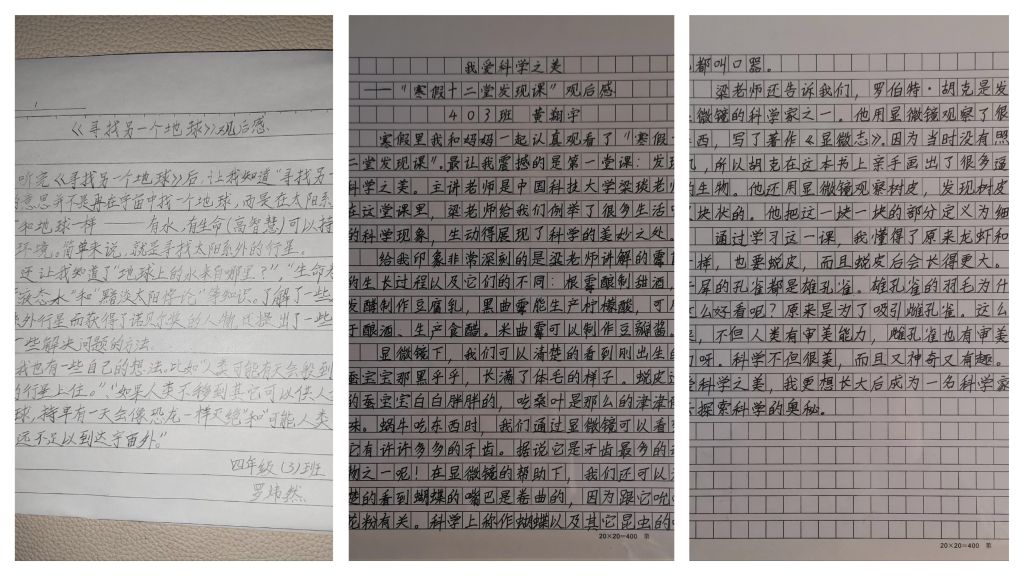 《寻找另一个地球》观后感
听完《寻找另一个地球》后,让我知道“寻找另一
意思并不是再在宇宙中找一个地球,而是在太阳系
和地球一样——有水,有生命(高智慧)可以持
环境。简单来说,就是寻找太阳系外的行星。
还让我知道了“地球上的水来自哪里?”,“生命
液态水”和“黯淡太阳悖论”等知识。了解了一些
外行星而获得了诺贝尔奖的人物,还提出了一些
一些解决问题的方法。
我也有一些自己的想法,比如“人类可能有天会搬到
的行星上住。”,“如果人类不移到其它可以供人
球,将早有一天会像恐龙一样灭绝”和“可能,人类
远不足以到达宇宙外。”
四年级(3)班
罗炜然
我爱科学之美
——“寒假十二堂发现课”观后感
403班 黄翔宇
寒假里我和妈妈一起认真观看了“寒假
二堂发现课”。最让我震撼的是第一堂课:发现
科学之美。主讲老师是中国科技大学梁琰老师
在这堂课里,梁老师给我们例举了很多生活
的科学现象,生动得展现了科学的美妙之处。
给我印象非常深刻的是梁老师讲解的霉
的生长过程以及它们的不同:根霉酿制甜酒,
发酵制作豆腐乳,黑曲霉能生产柠檬酸,可
于酿酒、生产食醋。米曲霉可以制作豆瓣酱。
显微镜下,我们可以清楚的看到刚出生的
蚕宝宝那黑乎乎,长满了体毛的样子。蜕皮
的蚕宝宝白白胖胖的,吃桑叶是那么的津津
味。蜗牛吃东西时,我们通过显微镜可以看
它有许许多多的牙齿。据说它是牙齿最多的
物之一呢!在显微镜的帮助下,我们还可以
楚的看到蝴蝶的嘴巴是卷曲的,因为跟它吮
花粉有关。科学上称作蝴蝶以及其它昆虫的
20×20=400 第
都叫口器。
梁老师还告诉我们,罗伯特·胡克是发
显微镜的科学家之一。他用显微镜观察了很
东西,写了著作《显微志》。因为当时没有照
机,所以胡克在这本书上亲手画出了很多逼
的生物。他还用显微镜观察树皮,发现树皮
块状的。他把这一块一块的部分定义为细
通过学习这一课,我懂得了原来龙虾和
一样,也要蜕皮,而且蜕皮后会长得更大。
开屏的孔雀都是雄孔雀。雄孔雀的羽毛为什
么好看呢?原来是为了吸引雌孔雀。这么
来,不但人类有审美能力,雌孔雀也有审美
力呀。科学不但很美,而且又神奇又有趣。
爱科学之美,我更想长大后成为一名科学家
去探索科学的奥秘。
20×20=400 第